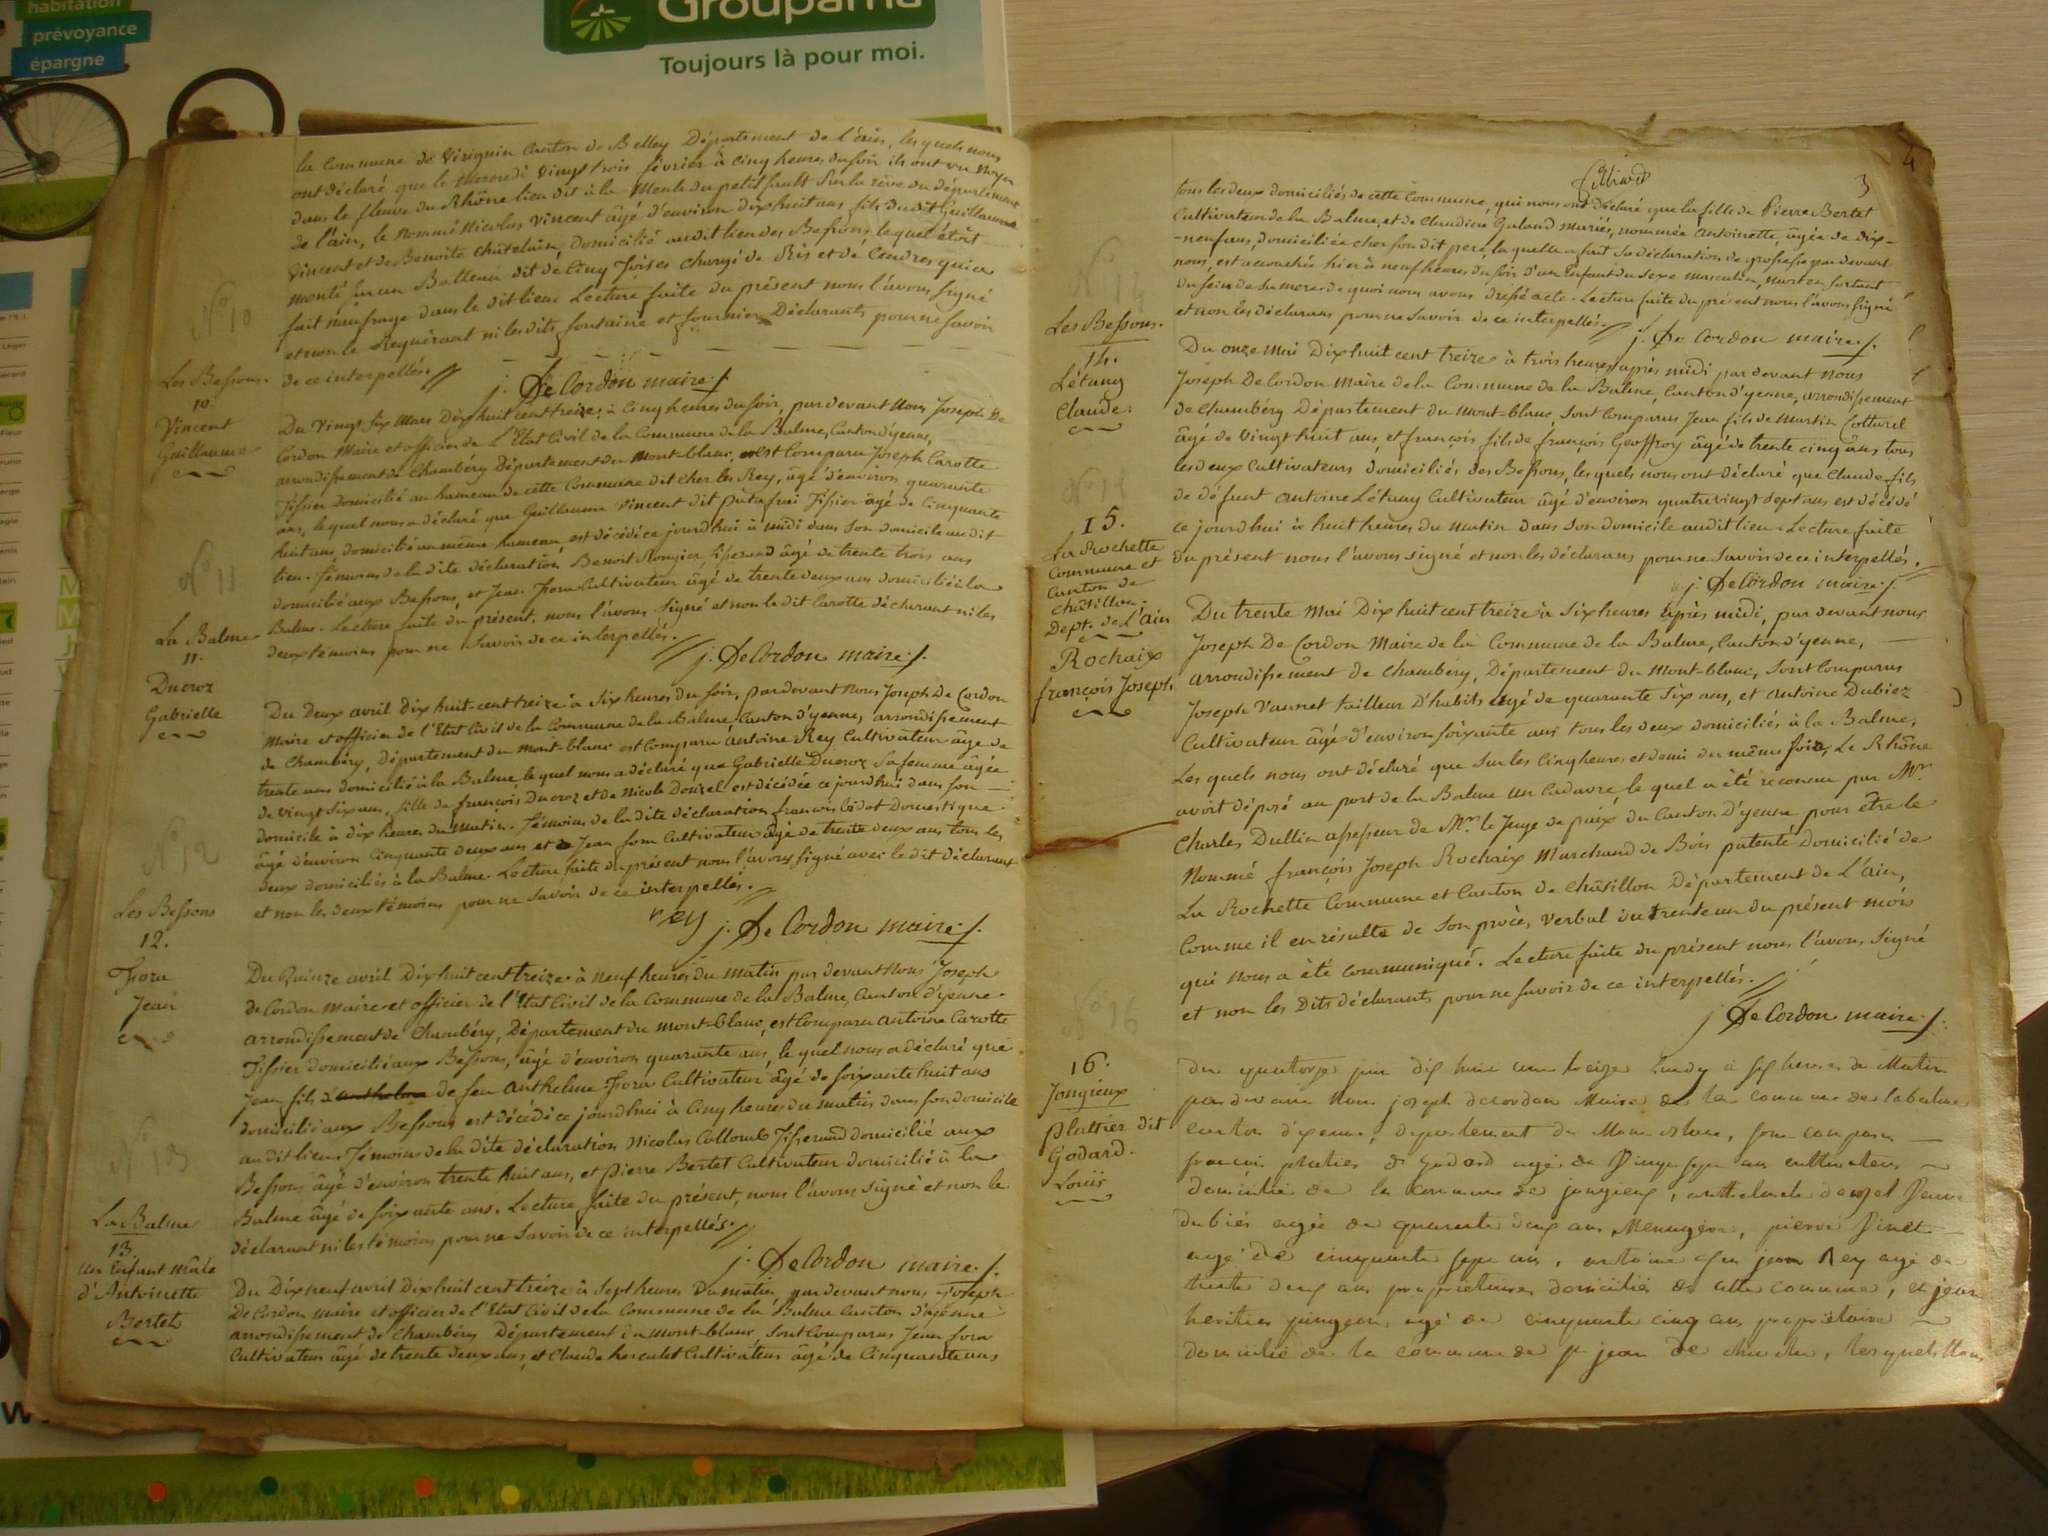 habitation
prévoyance
épargne
Groupama
Toujours là pour moi.
la Commune de Virignin Canton de Belley Département de l'ain, les quels nous
ont déclaré que le Mercredi Vingt trois février à Cinq heures du soir ils ont vu noyer
dans le fleuve du Rhône lieu dit à la du petit Sault Sur la rive du département
de l'ain, le nommé Nicolas Vincent âgé d'environ dix huit ans fils dudit Guillaume
Vincent et de Benoite Châtelain, domicilié audit lieu des Bessons, le quel étoit
monté sur un Batteau dit de Cinq Toises Chargé de Ris et de Cendres qui a
fait naufrage dans le dit lieu. Lecture faite du présent nous l'avons signé
et non le Requérant ni les dits fontaine et fournier Déclarants pour ne savoir
de ce interpellés.
j. De Cordon maire
N° 10
Les Bessons.
10
Vincent
Guillaume
Du Vingt Six Mars Dix huit cent treize, à Cinq heures du soir, par devant Nous Joseph De
Cordon Maire et officier de L'Etat Civil de la Commune de la Balme, Canton d'yenne,
arrondissement de Chambéry Département du Mont-blanc, est Comparu Joseph Carotte
Tissier domicilié au hameau de cette Commune dit Cher les Rey, âgé d'environ quarante
ans, le quel nous a déclaré que Guillaume Vincent dit Tissier âgé de Cinquante
huit ans, domicilié au même hameau est décédé ce jourd'hui à midi dans son domicile audit
lieu. Témoins de la dite déclaration Benoit Tisserand âgé de trente trois ans
domicilié aux Bessons, et Jean fora Cultivateur âgé de trente deux ans domicilié à la
Balme. Lecture faite du présent, nous l'avons signé et non le dit Carotte déclarant ni les
deux témoins pour ne savoir de ce interpellés.
j. De Cordon maire
N° 11
La Balme
11.
Ducroz
Gabrielle
Du Deux avril dix huit-cent treize à Six heures du soir, par devant Nous Joseph De Cordon
Maire et officier de l'Etat Civil de la Commune de la Balme, Canton d'yenne, arrondissement
de Chambéry, Département du Mont-blanc est Comparu Antoine Rey Cultivateur âgé de
trente ans domicilié à la Balme, le quel nous a déclaré que Gabrielle Ducroz Sa femme âgée
de vingt Six ans, fille de françois Ducroz et de Nicole Douzel est décédée ce jourd'hui dans son
domicile à dix heures du Matin. Témoins de la dite déclaration françois Domestique
âgé d'environ Cinquante deux ans et Jean fora Cultivateur âgé de trente deux ans tous les
deux domiciliés à la Balme. Lecture faite du présent nous l'avons signé avec le dit déclarant
et non les deux témoins pour ne savoir de ce interpellés.
rey j. De Cordon maire
N° 12
Les Bessons
12.
Fora
Jean
Du Quinze avril Dix huit cent treize à neuf heures du matin par devant Nous Joseph
de Cordon maire et officier de l'Etat Civil de la Commune de la Balme, Canton d'yenne
arrondissement de Chambéry, Département du mont-blanc, est Comparu Antoine Carotte
Tissier domicilié aux Bessons, âgé d'environ quarante ans, le quel nous a déclaré que
Jean fils de feu Anthelme Fora Cultivateur âgé de soixante huit ans
domicilié aux Bessons est décédé ce jourd'hui à Cinq heures du matin dans son domicile
audit lieu. Témoins de la dite déclaration Nicolas Collomb Tisserand domicilié aux
Bessons âgé d'environ trente huit ans, et pierre Bertet Cultivateur domicilié à la
Balme âgé de soixante ans. Lecture faite du présent, nous l'avons signé et non le
déclarant ni les témoins pour ne savoir de ce interpellés.
j. De Cordon maire
N° 13
La Balme
13
un Enfant mâle
d'Antoinette
Bertet
Du Dix neuf avril dix huit cent treize à Sept heures Du matin, par devant nous Joseph
De Cordon maire et officier de l'Etat Civil de la Commune de la Balme Canton d'yenne
arrondissement de Chambéry Département du mont-blanc, sont Comparus Jean fora
Cultivateur âgé de trente deux ans, et Claude Cultivateur âgé de Cinquante ans
3
4
tous les deux domiciliés de cette Commune, qui nous ont déclaré que la fille de Pierre Bertet
Cultivateur de la Balme, et de Claudine Galand mariés, nommée Antoinette, âgée de dix-
-neuf ans, domiciliée cher son dit pere, la quelle a fait sa déclaration de grossesse par devant
nous, est accouchée hier à neuf heures du soir d'un Enfant du Sexe masculin, mort en sortant
du sein de sa mere, de quoi nous avons dressé acte. Lecture faite du présent nous l'avons signé
et non les déclarans pour ne savoir de ce interpellés.
j. De Cordon maire
N° 14
Les Bessons.
14.
Létang
Claude.
Du onze Mai Dix huit cent treize à trois heures après midi par devant Nous
Joseph De Cordon Maire de la Commune de la Balme, Canton d'yenne, arrondissement
de Chambéry Département du Mont-blanc, sont Comparus Jean fils de Martin Cotturel
âgé de vingt huit ans, et françois fils de françois Geoffroy âgé de trente cinq ans tous
les deux Cultivateurs domiciliés des Bessons, les quels nous ont déclaré que Claude fils
de défunt antoine Létang Cultivateur âgé d'environ quatre vingt sept ans est décédé
ce jourd'hui à huit heures du matin dans son domicile audit lieu. Lecture faite
du présent nous l'avons signé et non les déclarans pour ne savoir de ce interpellés.
j. De Cordon maire
N° 15
15.
La Rochette
Commune et
Canton de
Châtillon.
Dept. de L'ain
Rochaix
françois Joseph
Du trente Mai Dix huit cent treize à Six heures après midi, par devant nous
Joseph De Cordon Maire de la Commune de la Balme, Canton d'yenne,
arrondissement de Chambéry, Département du Mont-blanc, sont Comparus
Joseph Vannet tailleur D'habits agé de quarante Six ans, et Antoine Dubiez
Cultivateur âgé d'environ soixante ans tous les deux domiciliés à la Balme,
Les quels nous ont déclaré que sur les Cinq heures et demi du même soir, Le Rhône
avoit déposé au port de la Balme un Cadavre, le quel a été reconnu par Mr.
Charles Dullin assesseur de Mr. le Juge de paix du Canton D'yenne pour être le
Nommé françois Joseph Rochaix Marchand de Bois patenté domicilié de
La Rochette Commune et Canton de Châtillon Département de L'ain,
Comme il en résulte de Son procès verbal du trente un du présent mois
qui nous a été communiqué. Lecture faite du présent nous l'avons signé
et non les Dits déclarants pour ne savoir de ce interpellés.
j. De Cordon maire
N° 16
16.
Jongieux
Plattier dit
Godard.
Louis
du quatorze juin dix huit cent treize Lundy à six heures du Matin
par devant Nous joseph decordon Maire de la commune de labalme
canton d'yenne, departement du Mont-blanc, sont comparu
françois platier dit Godard agé de vingt sept ans cultivateur
domicilié de la commune de jongieux, anthelmete douzel veuve
dubiés agée de quarante deux ans Menagere, pierre Pinet
agé de cinquante sept ans, antoine feu jean Rey agé de
trente deux ans propriétaires domiciliés de cette commune, et jean
agé de cinquante cinq ans propriétaire
domicilié de la commune de st jean de chevelu, lesquels Nous